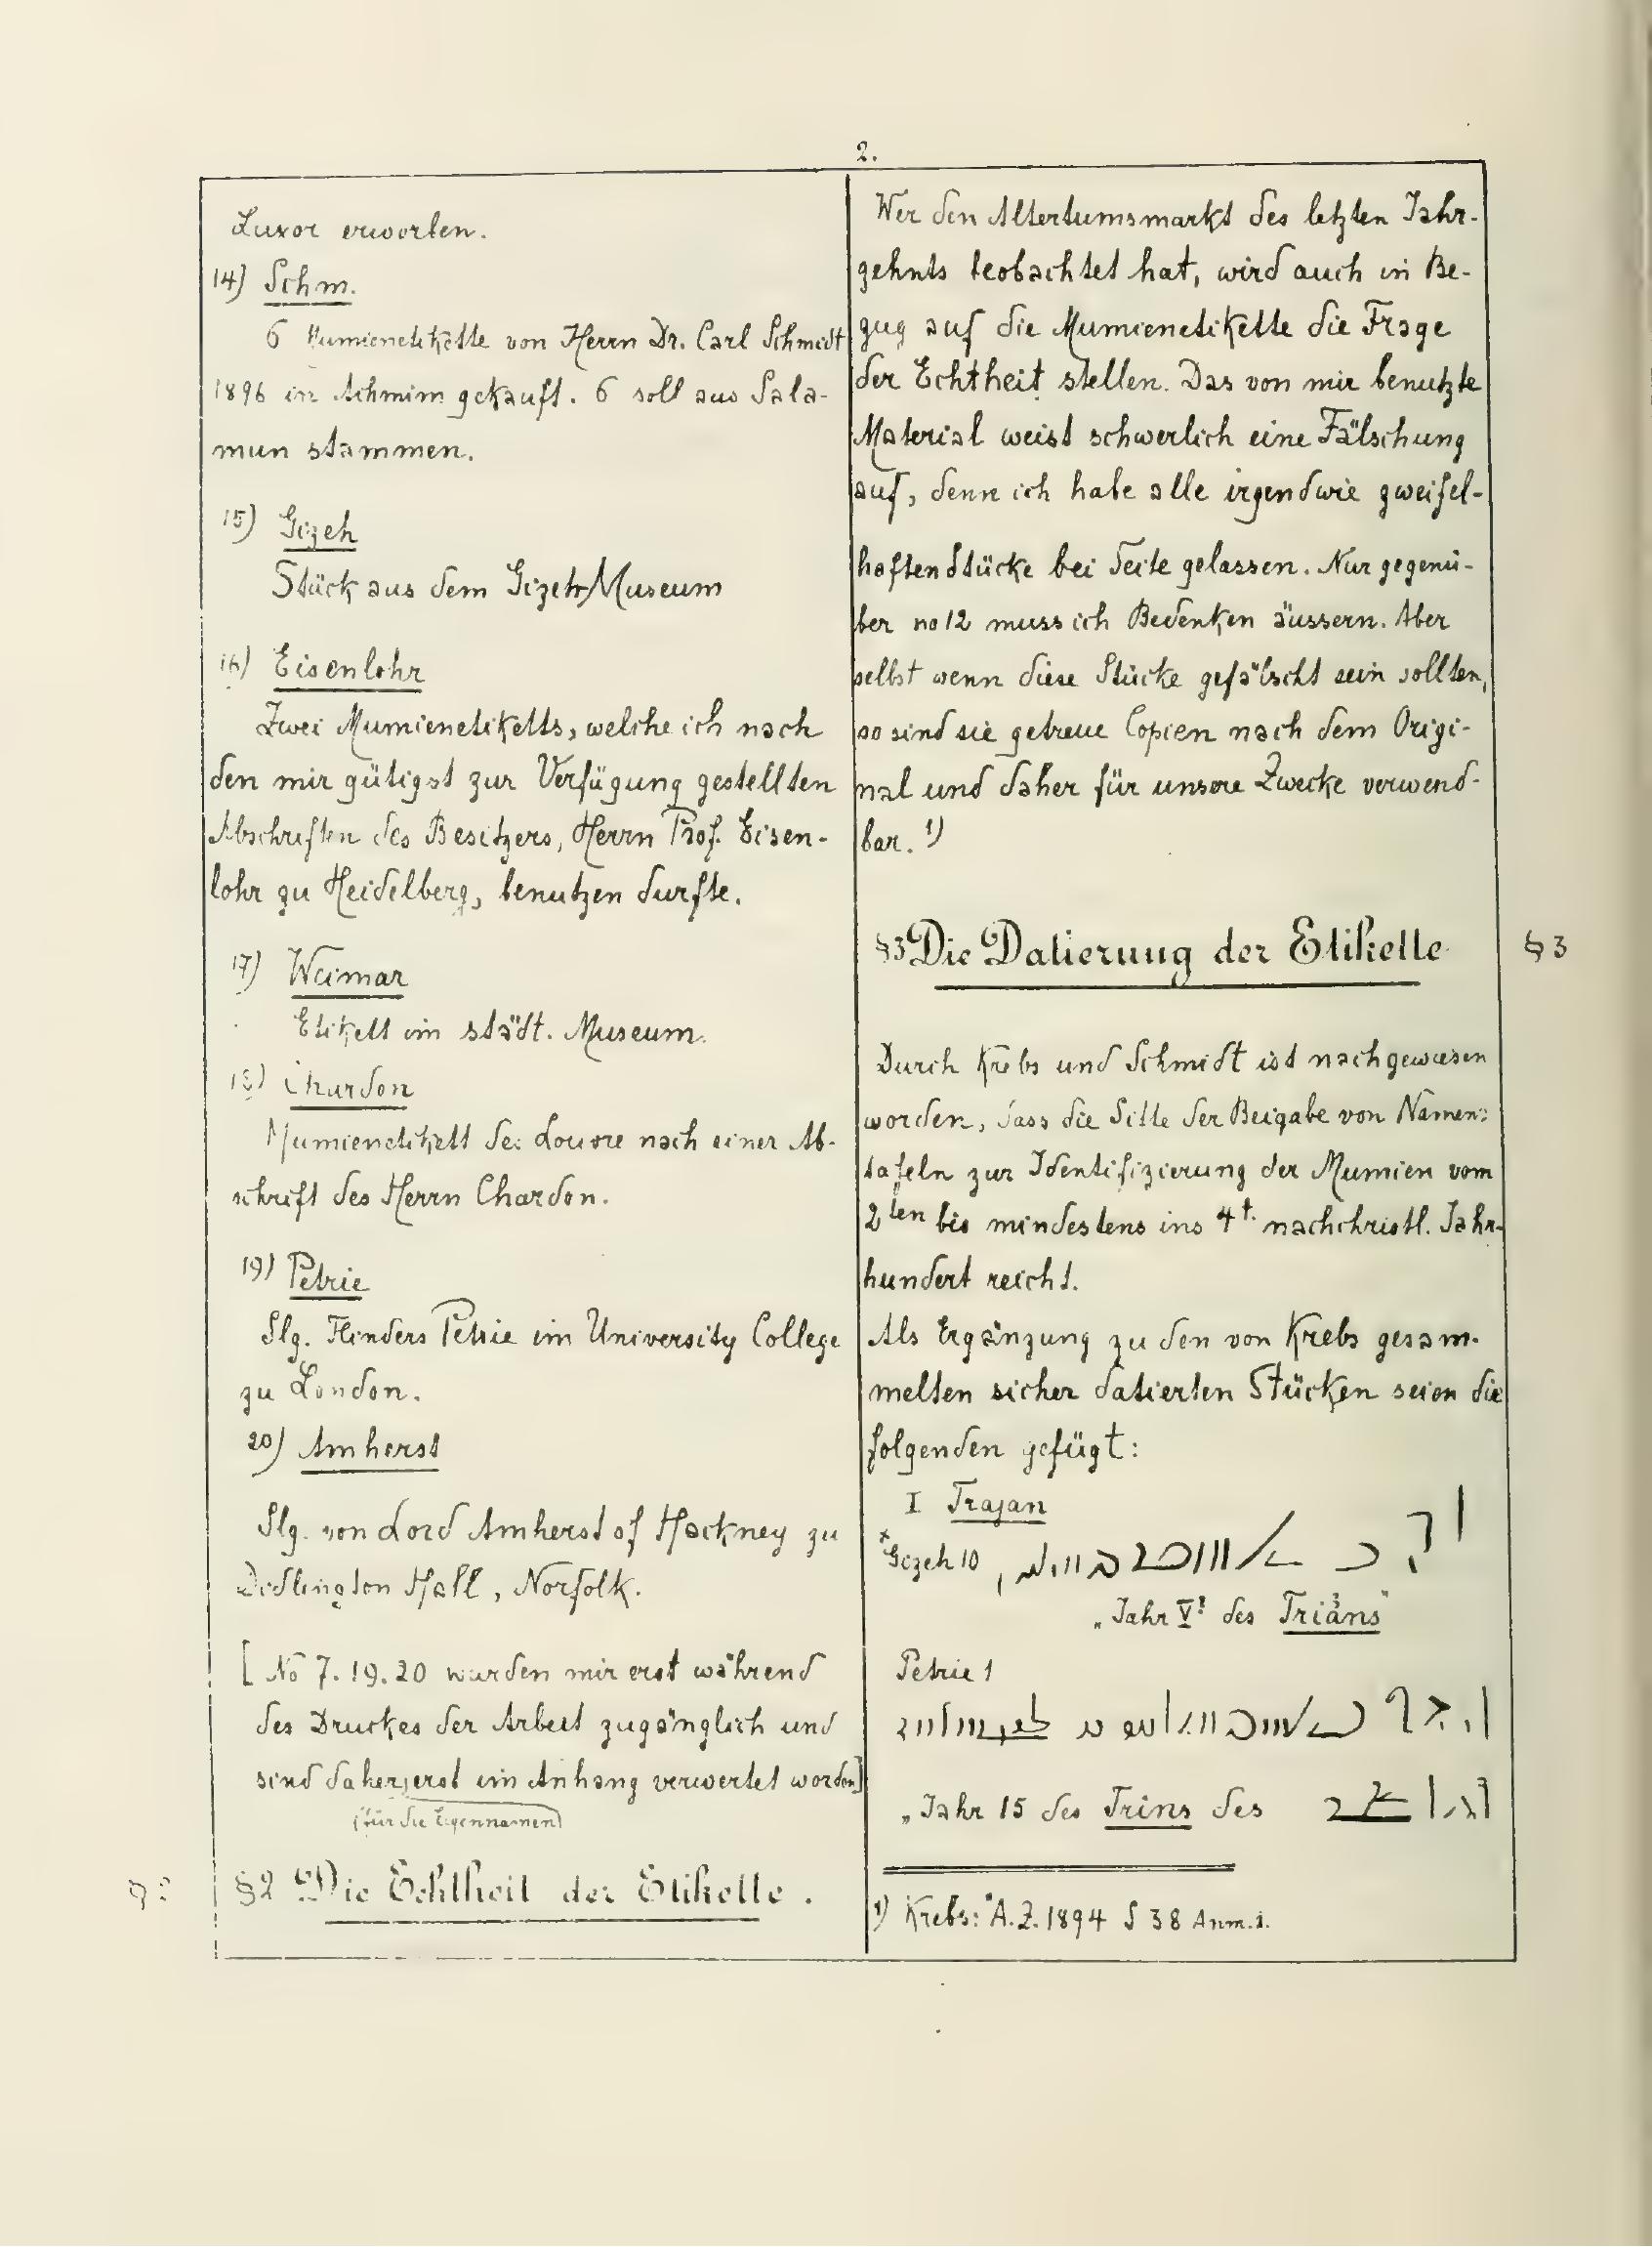 2.
Luxor erworben.
14) Schm.
6 Mumienetikette von Herrn Dr. Carl Schmidt
1896 in Achmim gekauft. 6 soll aus Sala-
mun stammen.
15) Gizeh
Stück aus dem Gizeh Museum
16) Eisenlohr
Zwei Mumienetiketts, welche ich nach
den mir gütigst zur Verfügung gestellten
Abschriften des Besitzers, Herrn Prof. Eisen-
lohr zu Heidelberg, benutzen durfte.
17) Weimar
Etikett im städt. Museum.
18) Chardon
Mumienetikett des Louvre nach einer Ab-
schrift des Herrn Chardon.
19) Petrie
Slg. Flinders Petrie im University College
zu London.
20) Amherst
Slg. von Lord Amherst of Hackney zu
Didlington Hall, Norfolk.
[No 7. 19. 20 wurden mir erst während
des Druckes der Arbeit zugänglich und
sind daher erst im Anhang verwertet worden]
(für die Eigennamen)
§2 Die Echtheit der Etikette.
Wer den Altertumsmarkt des letzten Jahr-
zehnts beobachtet hat, wird auch in Be-
zug auf die Mumienetikette die Frage
der Echtheit stellen. Das von mir benutzte
Material weist schwerlich eine Fälschung
auf, denn ich habe alle irgendwie zweifel-
haften Stücke bei Seite gelassen. Nur gegenü-
ber no 12 muss ich Bedenken äussern. Aber
selbst wenn diese Stücke gefälscht sein sollten,
so sind sie getreue Copien nach dem Origi-
nal und daher für unsere Zwecke verwend-
bar. 1)
§3 Die Datierung der Etikette
§ 3
Durch Krebs und Schmidt ist nachgewiesen
worden, dass die Sitte der Beigabe von Namen-
tafeln zur Identifizierung der Mumien vom
2ten bis mindestens ins 4t. nachchristl. Jahr-
hundert reicht.
Als Ergänzung zu den von Krebs gesam-
melten sicher datierten Stücken seien die
folgenden gefügt:
I Trajan
Gizeh 10
„Jahr V? des Trians"
Petrie 1
„Jahr 15 des Trins des
1) Krebs: A.Z. 1894 S 38 Anm. 1.